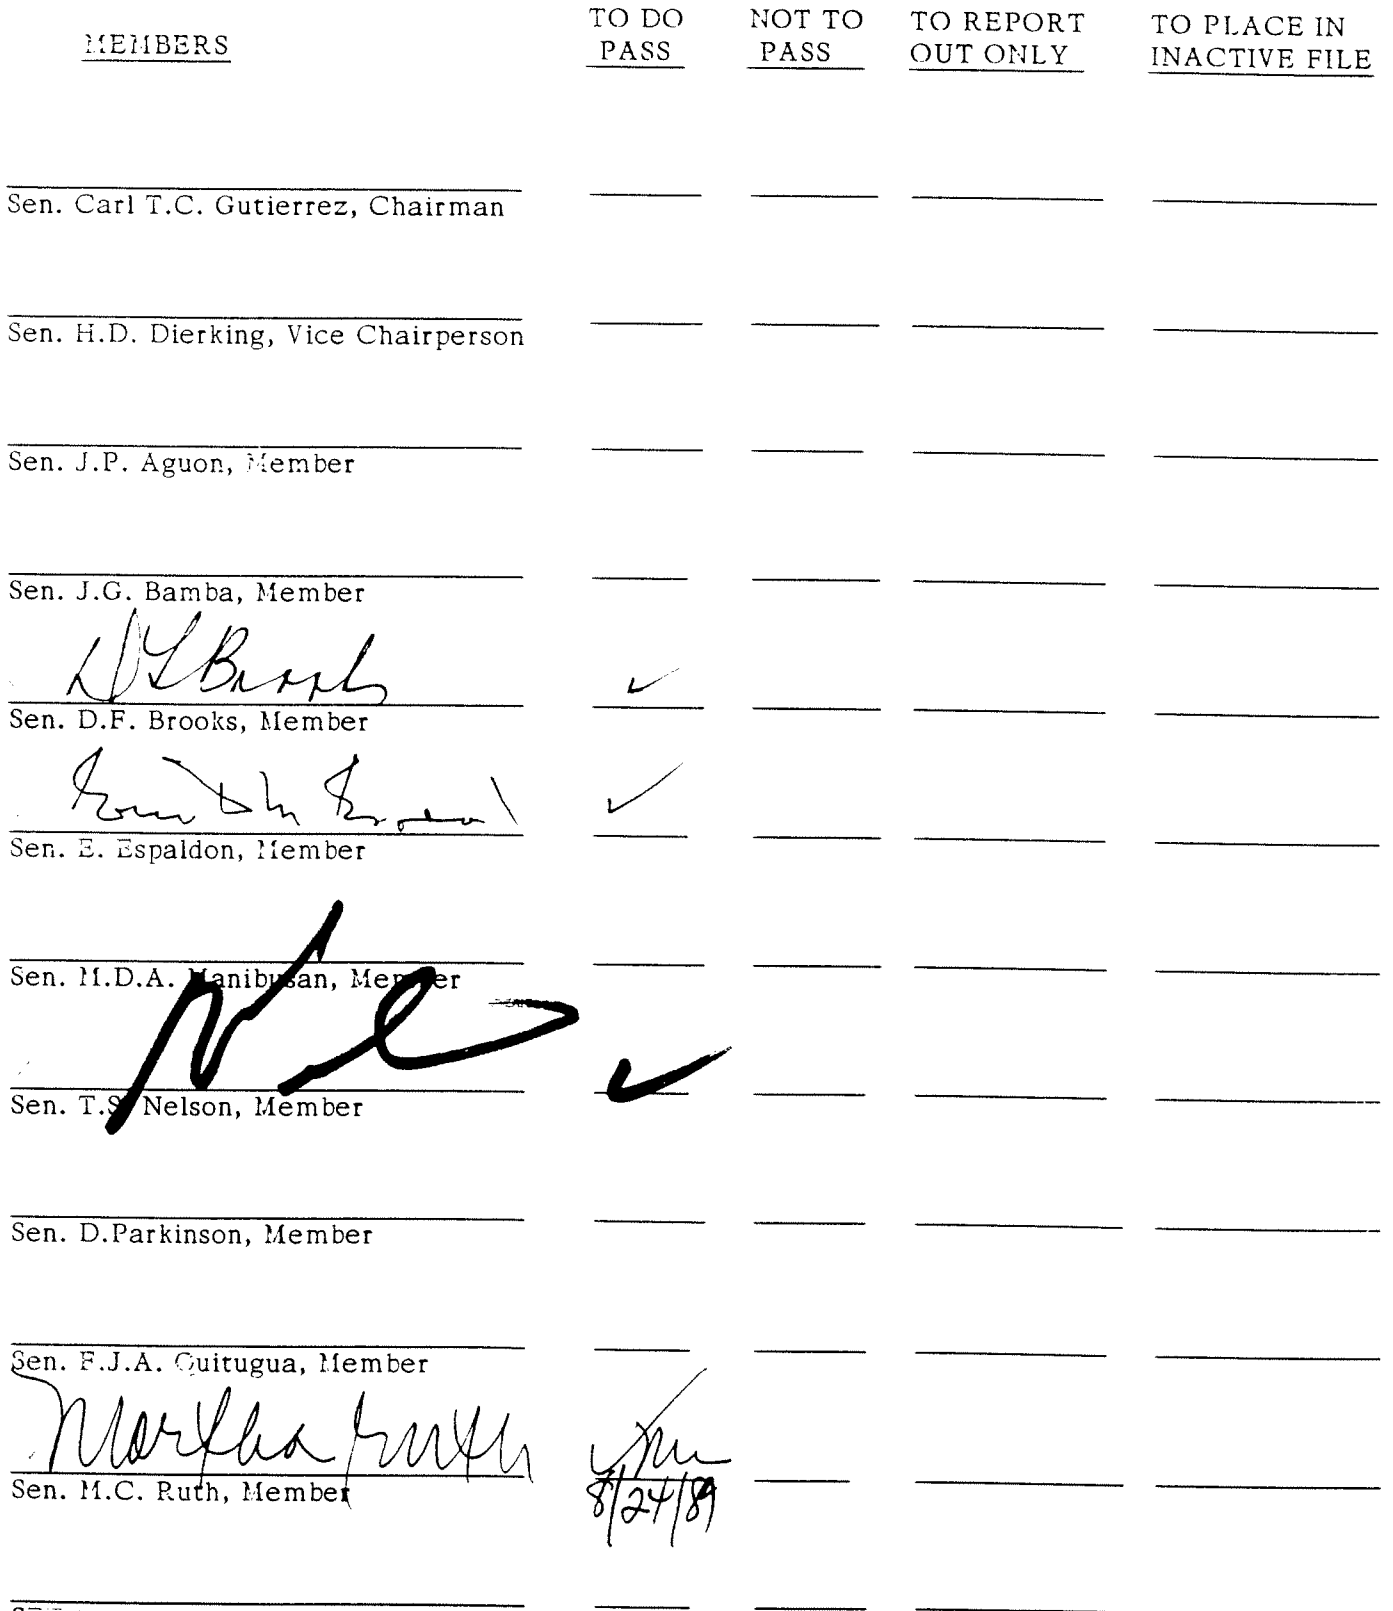 MEMBERS TO DO PASS NOT TO PASS TO REPORT OUT ONLY TO PLACE IN INACTIVE FILE
Sen. Carl T.C. Gutierrez, Chairman
Sen. H.D. Dierking, Vice Chairperson
Sen. J.P. Aguon, Member
Sen. J.G. Bamba, Member
D F Brooks ✓
Sen. D.F. Brooks, Member
✓
Sen. E. Espaldon, Member
Sen. M.D.A. Manibusan, Member
✓
Sen. T.S. Nelson, Member
Sen. D.Parkinson, Member
Sen. F.J.A. Quitugua, Member
Martha Ruth ✓
Sen. M.C. Ruth, Member 8/24/89